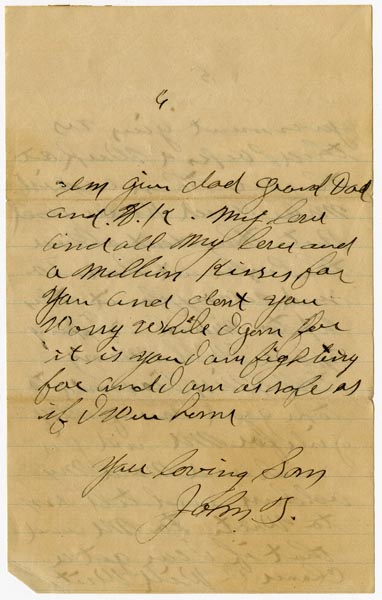 6
-em give dad grand Dad
and K. K. My love
and all My love and
a Million Kisses for
You and dont you
Worry While I gon for
it is you I am fighting
for and I am as safe as
if I were home
Your loving Son
John B.